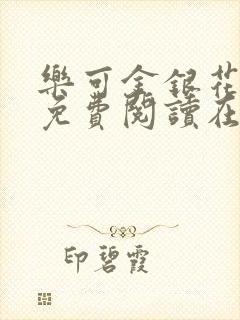 樂可金銀花
免費閱讀在
印碧霞